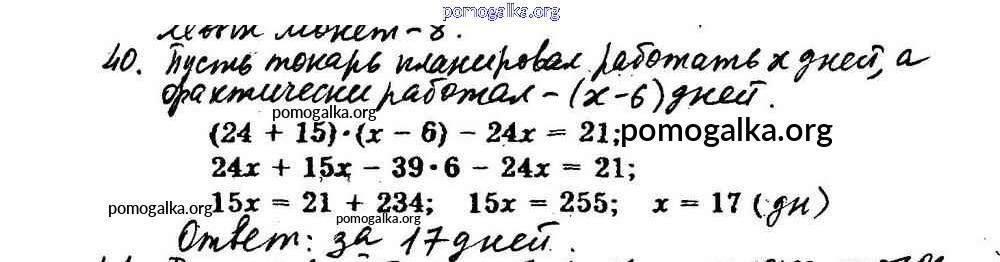 pomogalka.org
может - 8.
40. Пусть токарь планировал работать x дней, а
фактически работал - (x-6) дней.
pomogalka.org
(24 + 15)·(x - 6) - 24x = 21; pomogalka.org
24x + 15x - 39·6 - 24x = 21;
pomogalka.org 15x = 21 + 234; 15x = 255; x = 17 (дн)
pomogalka.org
Ответ: за 17 дней.